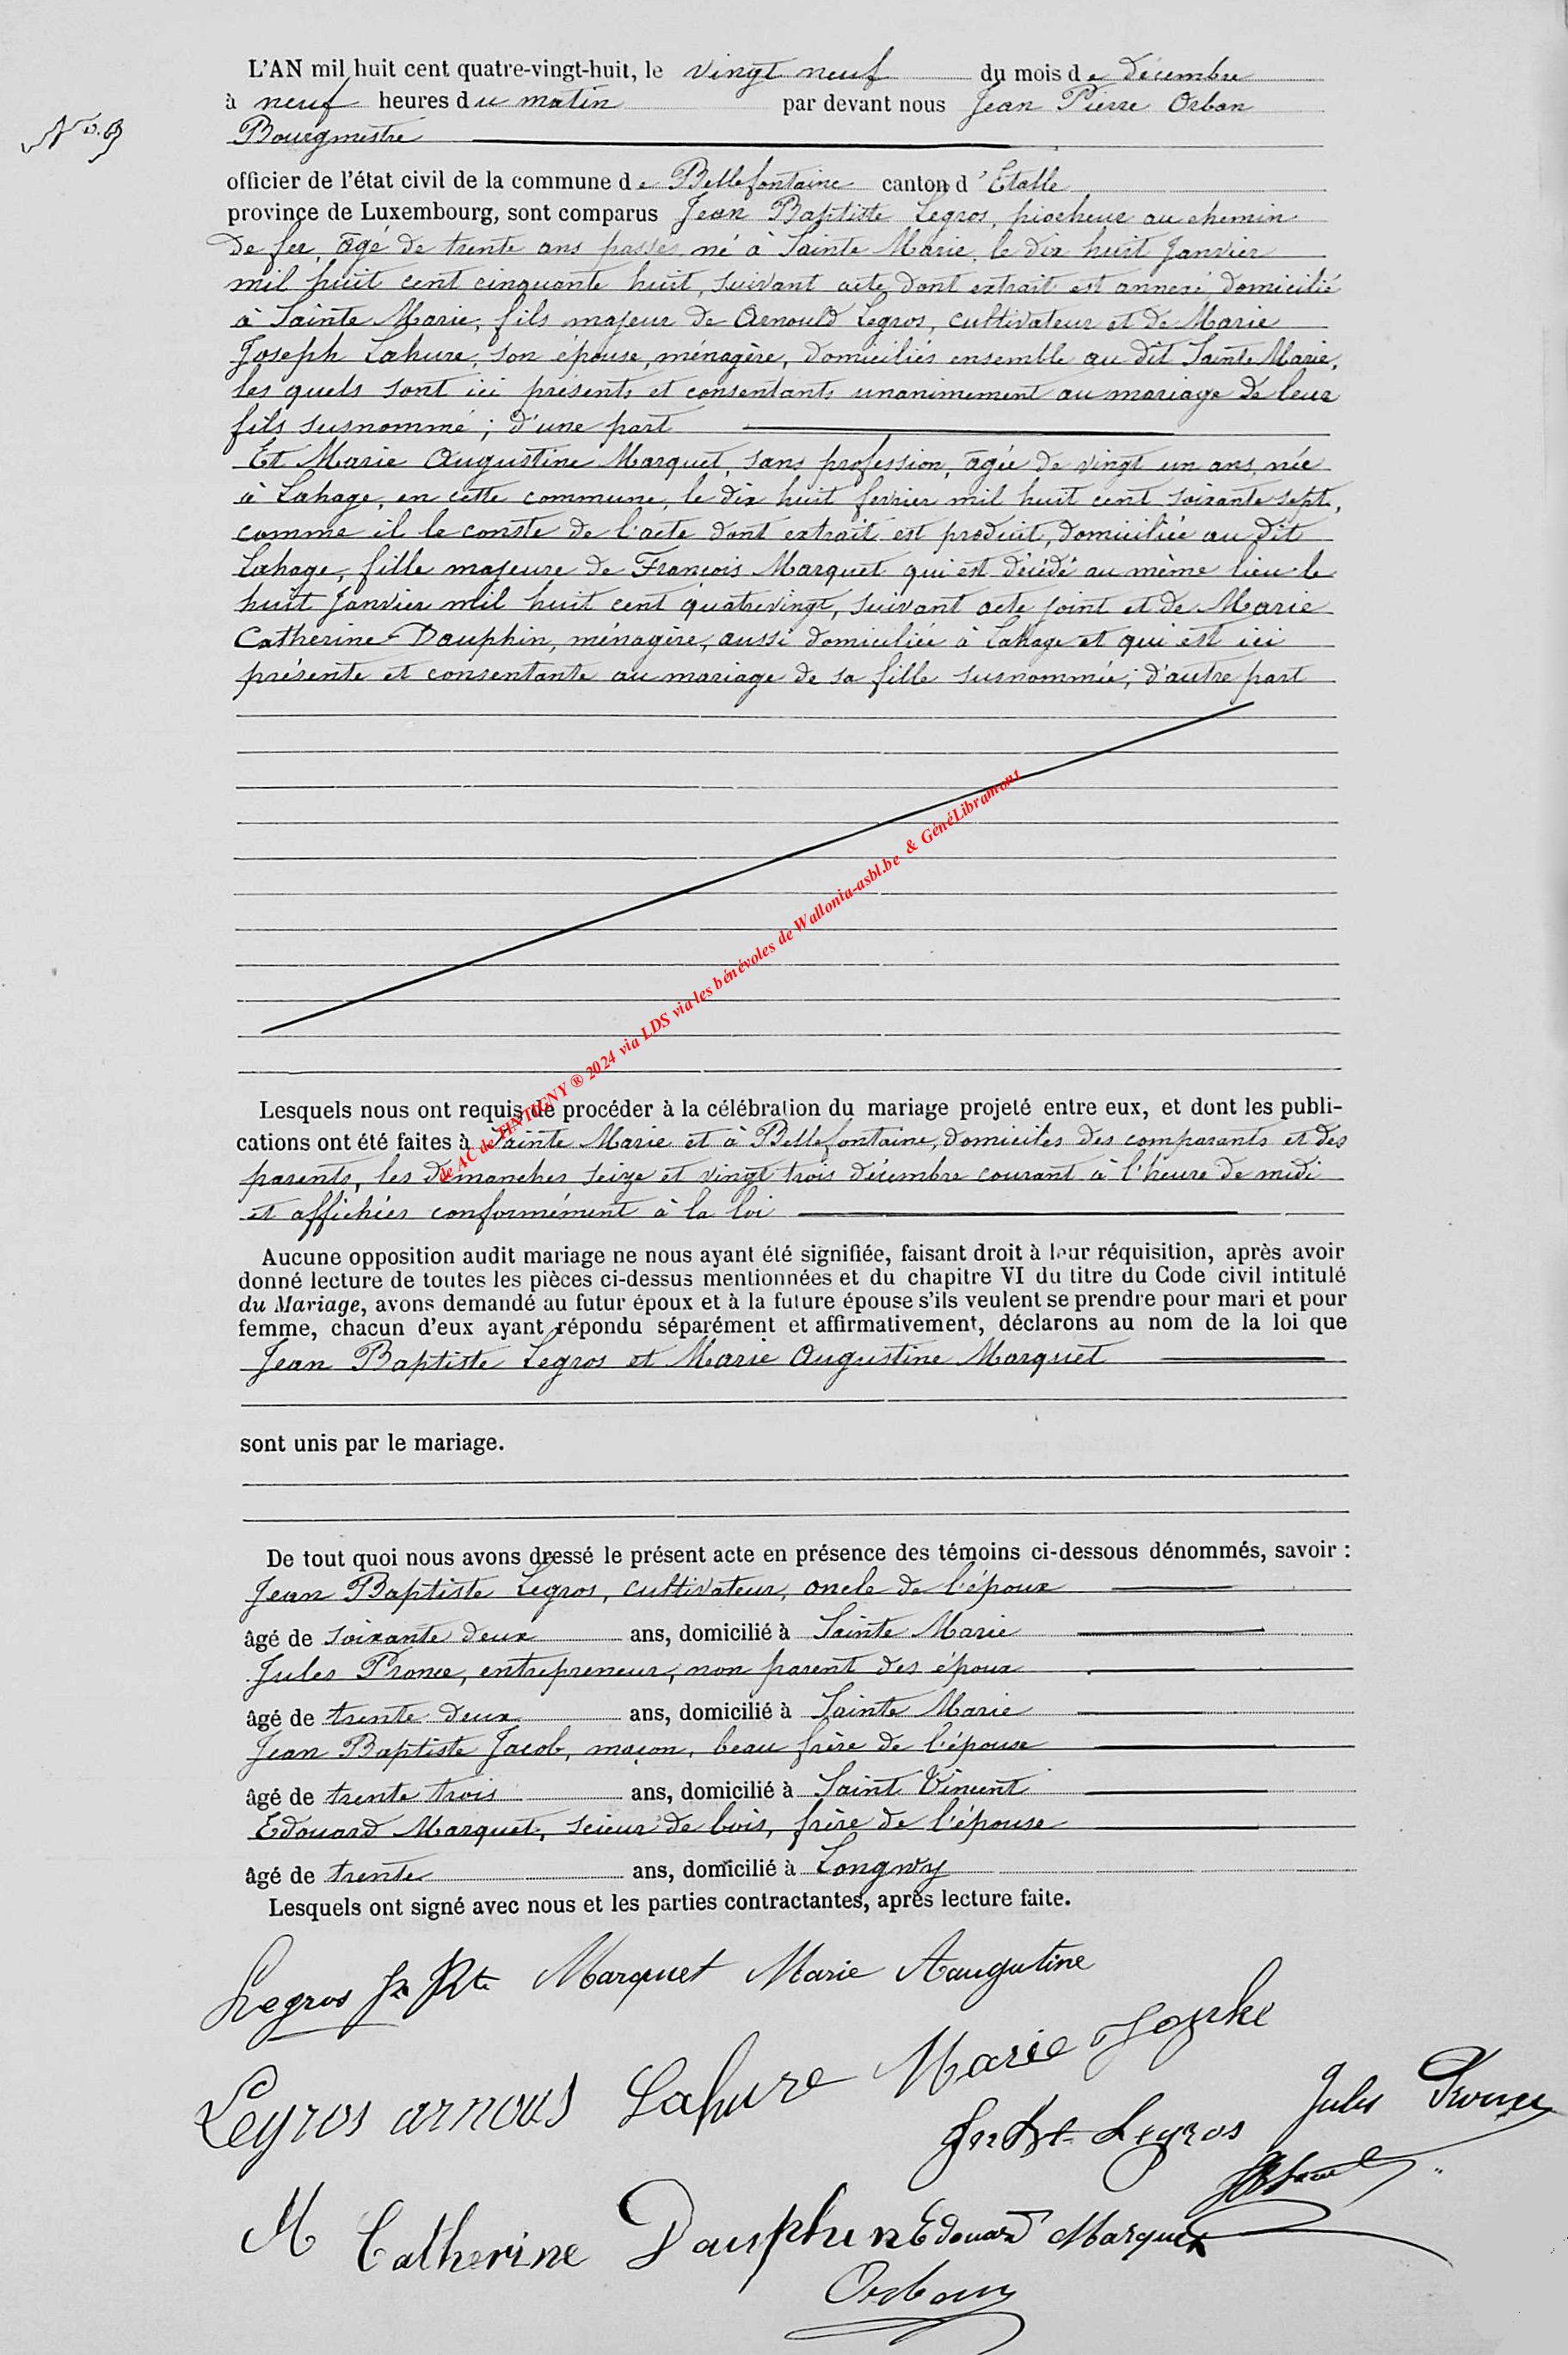 L'AN mil huit cent quatre-vingt-huit, le vingt neuf du mois de Décembre
à neuf heures du matin par devant nous Jean Pierre Orban
N° 9
Bourgmestre
officier de l'état civil de la commune de Bellefontaine canton d'Etalle
province de Luxembourg, sont comparus Jean Baptiste Legros, piocheur au chemin
de fer, âgé de trente ans passés né à Sainte Marie, le dix huit Janvier
mil huit cent cinquante huit, suivant acte dont extrait est annexé domicilié
à Sainte Marie, fils majeur de Arnould Legros, cultivateur et de Marie
Joseph Lahure, son épouse, ménagère, domiciliés ensemble au dit Sainte Marie,
les quels sont ici présents et consentants unanimement au mariage de leur
fils susnommé ; d'une part
Et Marie Augustine Marquet, sans profession, âgée de vingt un ans, née
à Lahage, en cette commune, le dix huit février mil huit cent soixante sept,
comme il le conste de l'acte dont extrait est produit, domiciliée au dit
Lahage, fille majeure de François Marquet qui est décédé au même lieu le
huit Janvier mil huit cent quatrevingt, suivant acte joint et de Marie
Catherine Dauphin, ménagère, aussi domiciliée à Lahage et qui est ici
présente et consentante au mariage de sa fille susnommée ; d'autre part
de AC de TINTIGNY ® 2024 via LDS via les bénévoles de Wallonia-asbl.be & GénéLibramont
Lesquels nous ont requis de procéder à la célébration du mariage projeté entre eux, et dont les publi-
cations ont été faites à Sainte Marie et à Bellefontaine, domiciles des comparants et des
parents, les dimanches seize et vingt trois décembre courant à l'heure de midi
et affichées conformément à la loi
Aucune opposition audit mariage ne nous ayant été signifiée, faisant droit à leur réquisition, après avoir
donné lecture de toutes les pièces ci-dessus mentionnées et du chapitre VI du titre du Code civil intitulé
du Mariage, avons demandé au futur époux et à la future épouse s'ils veulent se prendre pour mari et pour
femme, chacun d'eux ayant répondu séparément et affirmativement, déclarons au nom de la loi que
Jean Baptiste Legros et Marie Augustine Marquet
sont unis par le mariage.
De tout quoi nous avons dressé le présent acte en présence des témoins ci-dessous dénommés, savoir :
Jean Baptiste Legros, cultivateur, oncle de l'époux
âgé de soixante deux ans, domicilié à Sainte Marie
Jules Pronce, entrepreneur, non parent des époux
âgé de trente deux ans, domicilié à Sainte Marie
Jean Baptiste Jacob, maçon, beau frère de l'épouse
âgé de trente trois ans, domicilié à Saint Vincent
Edouard Marquet, scieur de bois, frère de l'épouse
âgé de trente ans, domicilié à Longwy
Lesquels ont signé avec nous et les parties contractantes, après lecture faite.
Legros Jn Bte Marquet Marie Aaugutine
Legros arnoud Lahure Marie
Jn Bt Legros Jules Pronce
M Catherine Dauphin Edouard Marquet
Orban